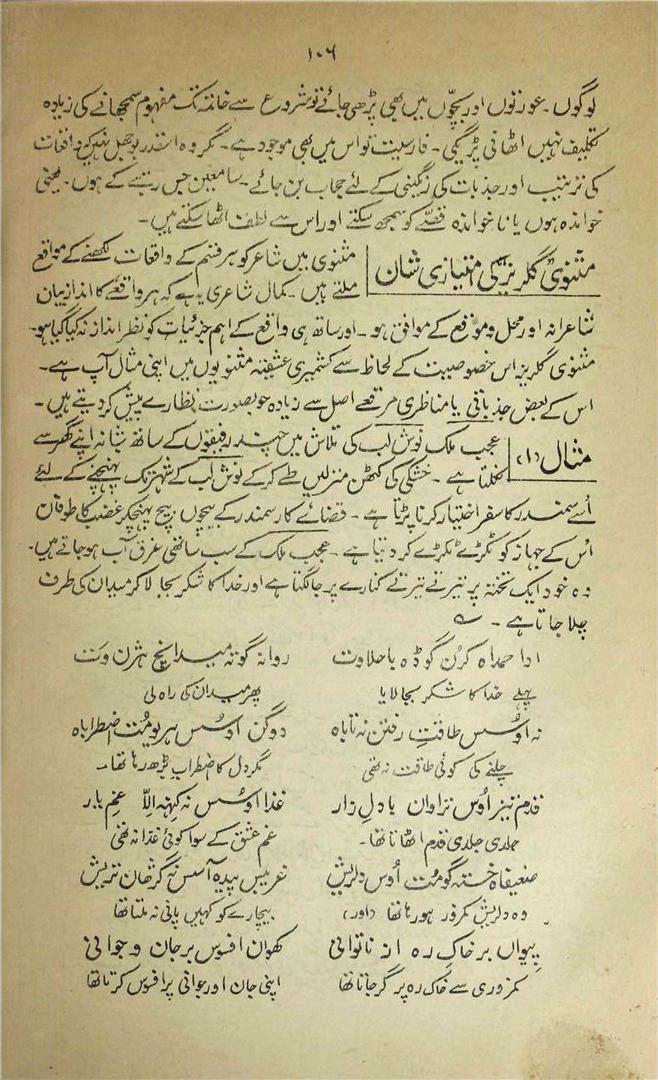 ۱۰۶
لوگوں۔ عورتوں اور بچّوں میں بھی پڑھی جائے تو شروع سے خاتمہ تک مفہوم سمجھانے کی زیادہ
تکلیف نہیں اٹھانی پڑیگی۔ فارسیت تو اس میں بھی موجود ہے۔ مگر وہ اسقدر بوجھل نہیں کہ واقعات
کی ترتیب اور جذبات کی رنگینی کے لئے حجاب بن جائے۔ سامعین جس رتبے کے ہوں۔ یعنی
خواندہ ہوں یا ناخواندہ قصّے کو سمجھ سکتے اور اس سے لطف اٹھا سکتے ہیں۔
مثنویٔ گلریز کی امتیازی شان
مثنوی میں شاعر کو ہر قسم کے واقعات لکھنے کے مواقع
ملتے ہیں۔ کمال شاعری یہ ہے کہ ہر واقعے کا اندازِ بیان
شاعرانہ اور محل و موقع کے موافق ہو۔ اور ساتھ ہی واقع کے اہم جزئیات کو نظر انداز نہ کیا گیا ہو۔
مثنوی گلریز اس خصوصیت کے لحاظ سے کشمیری عشقیہ مثنویوں میں اپنی مثال آپ ہے۔
اس کے بعض جذباتی یا مناظری مرقعے اصل سے زیادہ خوبصورت نظارے پیش کر دیتے ہیں۔
مثال (۱)
عجب ملک نوش لب کی تلاش میں چند رفیقوں کے ساتھ شبانہ اپنے گھر سے
نکلتا ہے۔ خشکی کی کٹھن منزلیں طے کر کے نوش لب کے شہر تک پہنچنے کے لئے
اُسے سمندر کا سفر اختیار کرنا پڑتا ہے۔ قضائے کار سمندر کے بیچوں بیچ پہنچکر غضب کا طوفان
اُس کے جہاز کو ٹکڑے ٹکڑے کر دیتا ہے۔ عجب ملک کے سب ساتھی غرق آب ہو جاتے ہیں۔
وہ خود ایک تختہ پر تیرتے تیرتے کنارے پر جا لگتا ہے اور خدا کا شکر بجا لا کر میدان کی طرف
چلا جاتا ہے۔
ادا حمداہ کرُن گوڈہ با حلاوت روانہ گوتہ میدانچ ہژرن وت
پہلے خدا کا شکر بجا لایا پھر میدان کی راہ لی
نہ اوُسس طاقتِ رفتن نہ تاباہ دوگن اوُسس ہریومُت اضطراباہ
چلنے کی کوئی طاقت نہ تھی مگر دل کا اضطراب بڑھ رہا تھا۔
قدم تیز اوُس تراوان بادلِ زار غذا اوُسس نہ کہنہ الّا غمِ یار
جلدی جلدی قدم اٹھاتا تھا۔ غمِ عشق کے سوا کوئی غذا نہ تھی
ضعیفاہ خستہ گومُت اوُس دلریش غریبس پیدہ آسس نہ گژھان تریش
وہ دلریش کمزور ہو رہا تھا (اور) بیچارے کو کہیں پانی نہ ملتا تھا
پیوان بر خاکِ رہ از ناتوانی کھون افسوس بر جان و جوانی
کمزوری سے خاکِ رہ پر گر جاتا تھا اپنی جان اور جوانی پر افسوس کرتا تھا